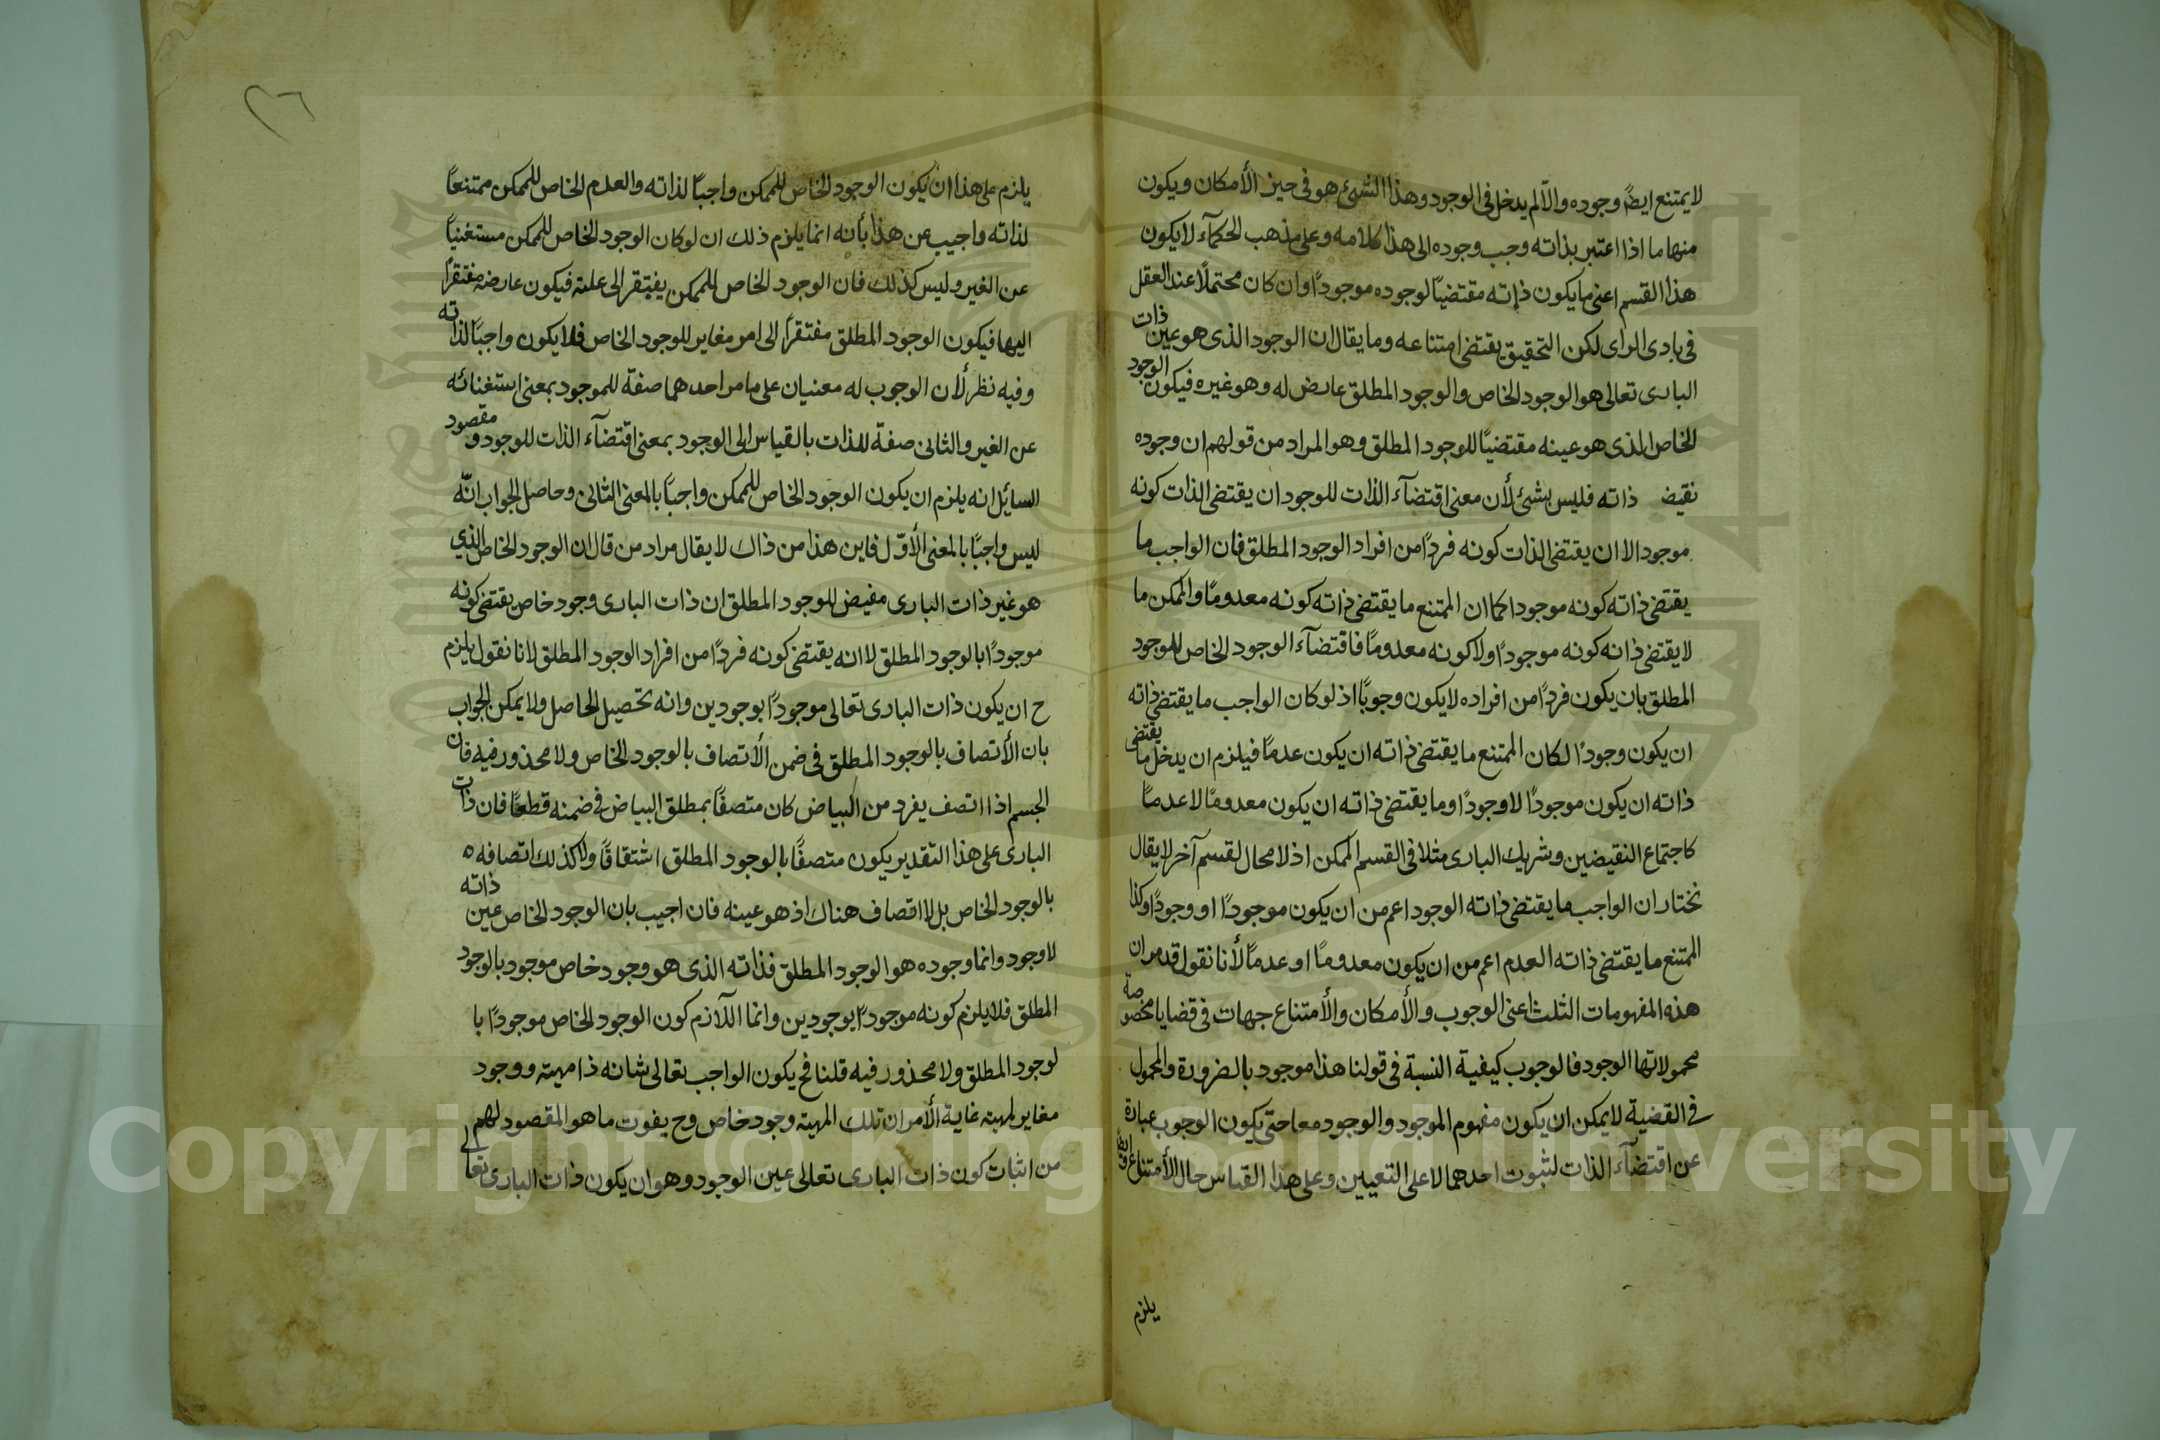 لا يمتنع ايضً وجوده والّا لم يدخل فى الوجود وهذا الشئ هو فى حيز الأمكان ويكون
منها ما اذا اعتبر بذاته وجب وجوده الى هذا كلامه وعلى مذهب الحكمآء لا يكون
هذا القسم اعنى ما يكون ذاته مقتضيًا لوجوده موجودًا وان كان محتملًا عند العقل
فى بادى الراى لكن التحقيق يقتضى امتناعه وما يقال ان الوجود الذى هو عين ذات
البارى تعالى هو الوجود الخاص والوجود المطلق عارض له وهو غيره فيكون الوجود
الخاص الذى هو عينه مقتضيًا للوجود المطلق وهو المراد من قولهم ان وجوده
نقيض ذاته فليس بشئ لأن معنى اقتضآء الذات للوجود ان يقتضى الذات كونه
موجودا لا ان يقتضى الذات كونه فردًا من افراد الوجود المطلق فان الواجب ما
يقتضى ذاته كونه موجودا كما ان الممتنع ما يقتضى ذاته كونه معدومًا والممكن ما
لا يقتضى ذاته كونه موجودًا ولا كونه معدومًا فاقتضآء الوجود الخاص للوجود
المطلق بان يكون فردًا من افراده لا يكون وجوبًا اذ لو كان الواجب ما يقتضى ذاته
ان يكون وجودًا لكان الممتنع ما يقتضى ذاته ان يكون عدمًا فيلزم ان يدخل ما يقتضى
ذاته ان يكون موجودًا لا وجودًا وما يقتضى ذاته ان يكون معدومًا لا عدمًا
كاجتماع النقيضين وشريك البارى مثلا فى القسم الممكن اذ لا محال لقسم آخر لا يقال
نختار ان الواجب ما يقتضى ذاته الوجود اعم من ان يكون موجودًا او وجودًا وكذا
الممتنع ما يقتضى ذاته العدم اعم من ان يكون معدومًا او عدمًا لأنا نقول قد مر ان
هذه المفهومات الثلث اعنى الوجوب والأمكان والأمتناع جهات فى قضايا مخصوصة
محمولاتها الوجود فالوجوب كيفية النسبة فى قولنا هذا موجود بالضرورة والمحمول
فى القضية لا يمكن ان يكون مفهوم الموجود والوجود معا حتى يكون الوجوب عبارة
عن اقتضآء الذات لثبوت احدهما لا على التعيين وعلى هذا القياس حال الأمتناع وايضً
يلزم
يلزم على هذا ان يكون الوجود الخاص للممكن واجبًا لذاته والعدم الخاص للممكن ممتنعًا
لذاته واجيب عن هذا بأنه انما يلزم ذلك ان لو كان الوجود الخاص للممكن مستغنيًا
عن الغير وليس كذلك فان الوجود الخاص للممكن يفتقر الى علته فيكون عارضه مفتقرًا
اليها فيكون الوجود المطلق مفتقرًا الى امر مغاير للوجود الخاص فلا يكون واجبًا لذاته
وفيه نظر لأن الوجوب له معنيان على ما مر احدهما صفة للموجود بمعنى استغنائه
عن الغير والثانى صفة للذات بالقياس الى الوجود بمعنى اقتضآء الذات للوجود ومقصود
السايل انه يلزم ان يكون الوجود الخاص للممكن واجبًا بالمعنى الثانى وحاصل الجواب انّه
ليس واجبًا بالمعنى الأوّل فاين هذا من ذاك لا يقال مراد من قال ان الوجود الخاص الذي
هو غير ذات البارى مفيض للوجود المطلق ان ذات البارى وجود خاص يقتضى كونه
موجودًا بالوجود المطلق لا انه يقتضى كونه فردًا من افراد الوجود المطلق لانا نقول يلزم
ح ان يكون ذات البارى تعالى موجودًا بوجودين وانه تحصيل الحاصل ولا يمكن الجواب
بان الأتصاف بالوجود المطلق فى ضمن الأتصاف بالوجود الخاص ولا محذور فيه فان
الجسم اذا اتصف بفرد من البياض كان متصفًا بمطلق البياض فى ضمنه قطعًا فان ذات
البارى على هذا التقدير يكون متصفًا بالوجود المطلق اشتقاقًا ولا كذلك اتصافه ه
بالوجود الخاص بل لا اتصاف هناك اذ هو عينه فان اجيب بان الوجود الخاص عين ذاته
لا وجود وانما وجوده هو الوجود المطلق فذاته الذى هو وجود خاص موجود بالوجود
المطلق فلا يلزم كونه موجودًا بوجودين وانما اللّازم كون الوجود الخاص موجودًا با
لوجود المطلق ولا محذور فيه قلنا فح يكون الواجب تعالى شانه ذا مهية ووجود
مغاير لمهيته غاية الأمر ان تلك المهية وجود خاص وح يفوت ما هو المقصود لهم
من اثبات كون ذات البارى تعالى عين الوجود وهو ان يكون ذات البارى تعالى